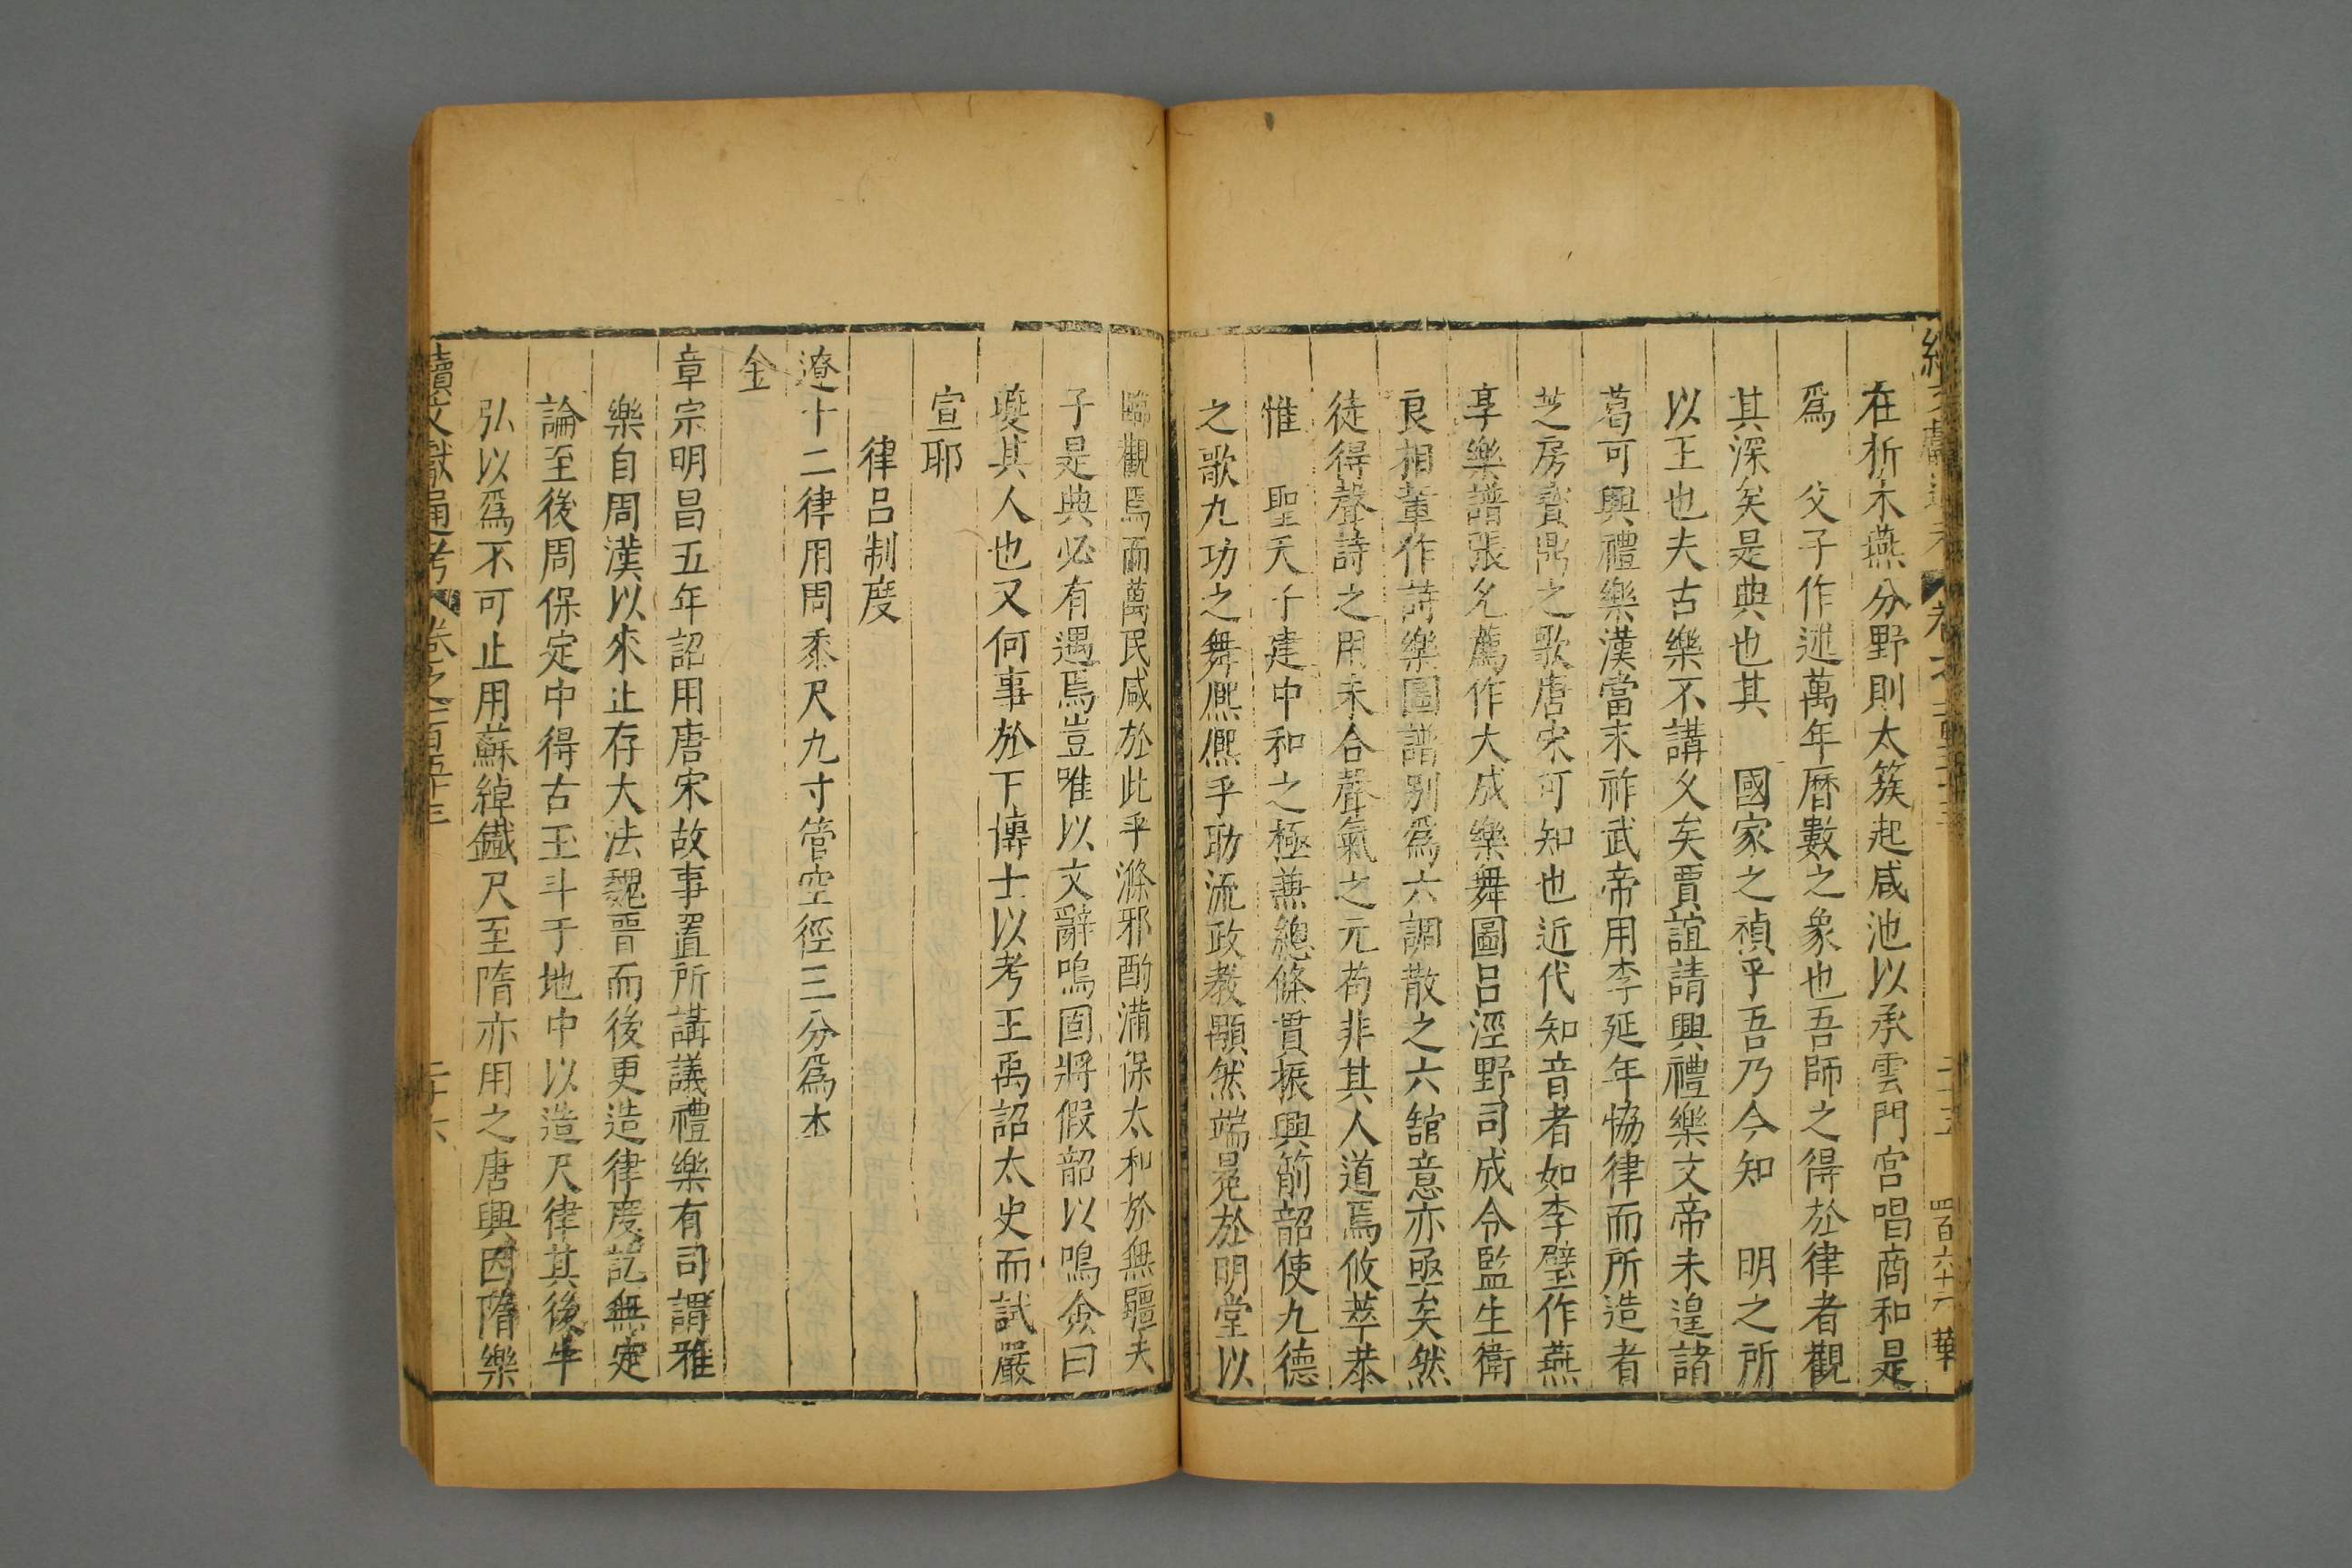 在析木燕分野則太簇起咸池以承雲門宮唱商和是
爲　父子作述萬年曆數之象也吾師之得於律者觀
其深矣是典也其　國家之禎乎吾乃今知　明之所
以王也夫古樂不講久矣賈誼請興禮樂文帝未遑諸
葛可興禮樂漢當末祚武帝用李延年協律而所造者
芝房寶鼎之歌唐宋可知也近代知音者如李璧作燕
享樂譜張允薦作大成樂舞圖呂涇野司成令監生衛
良相輩作詩樂圖譜別爲六調散之六館意亦亟矣然
徒得聲詩之用未合聲氣之元苟非其人道焉攸萃恭
惟　聖天子建中和之極兼總條貫振興簫韶使九德
之歌九功之舞熈熈乎劭流政教顒然端冕於明堂以
臨觀焉而萬民咸於此乎滌邪酌滿保太和於無疆夫
子是典必有遇焉豈唯以文辭嗚固將假韶以鳴僉曰
夔其人也又何事於下慱士以考王禹詔太史而試嚴
宣耶
律呂制度
遼十二律用周黍尺九寸管空徑三分爲本
金
章宗明昌五年詔用唐宋故事置所講議禮樂有司謂雅
樂自周漢以來止存大法魏晉而後更造律度訖無定
論至後周保定中得古玉斗于地中以造尺律其後牛
弘以爲不可止用蘇綽鐵尺至隋亦用之唐興因隋樂
續文獻通考　卷之一百五十三　二十六
四百六十六　華